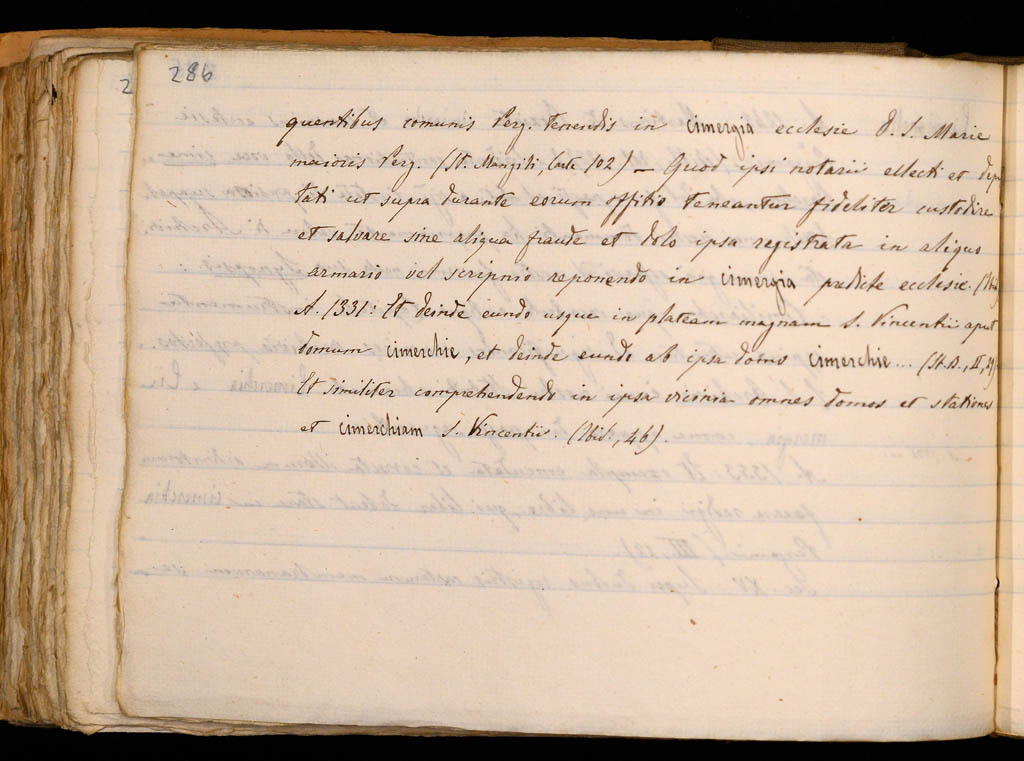 286
quentibus comunis Perg. tenendis in cimergia ecclesie D. S. Marie
maioris Perg. (St. Mangili, Carte 102) — Quod ipsi notarii ellecti et depu
tati ut supra durante eorum offitio teneantur fideliter custodire
et salvare sine aliqua fraude et dolo ipsa registrata in aliquo
armario vel scripnio reponendo in cimergia predicte ecclesie. (Ibid
A. 1331: Et deinde eundo usque in plateam magnam S. Vincentii aput
domum cimerchie, et deinde eundo ab ipsa domo cimerchie ... (St. D., II, 29)
Et similiter comprehendendo in ipsa vicinia omnes domos et stationes
et cimerchiam S. Vincentii. (Ibid., 46).